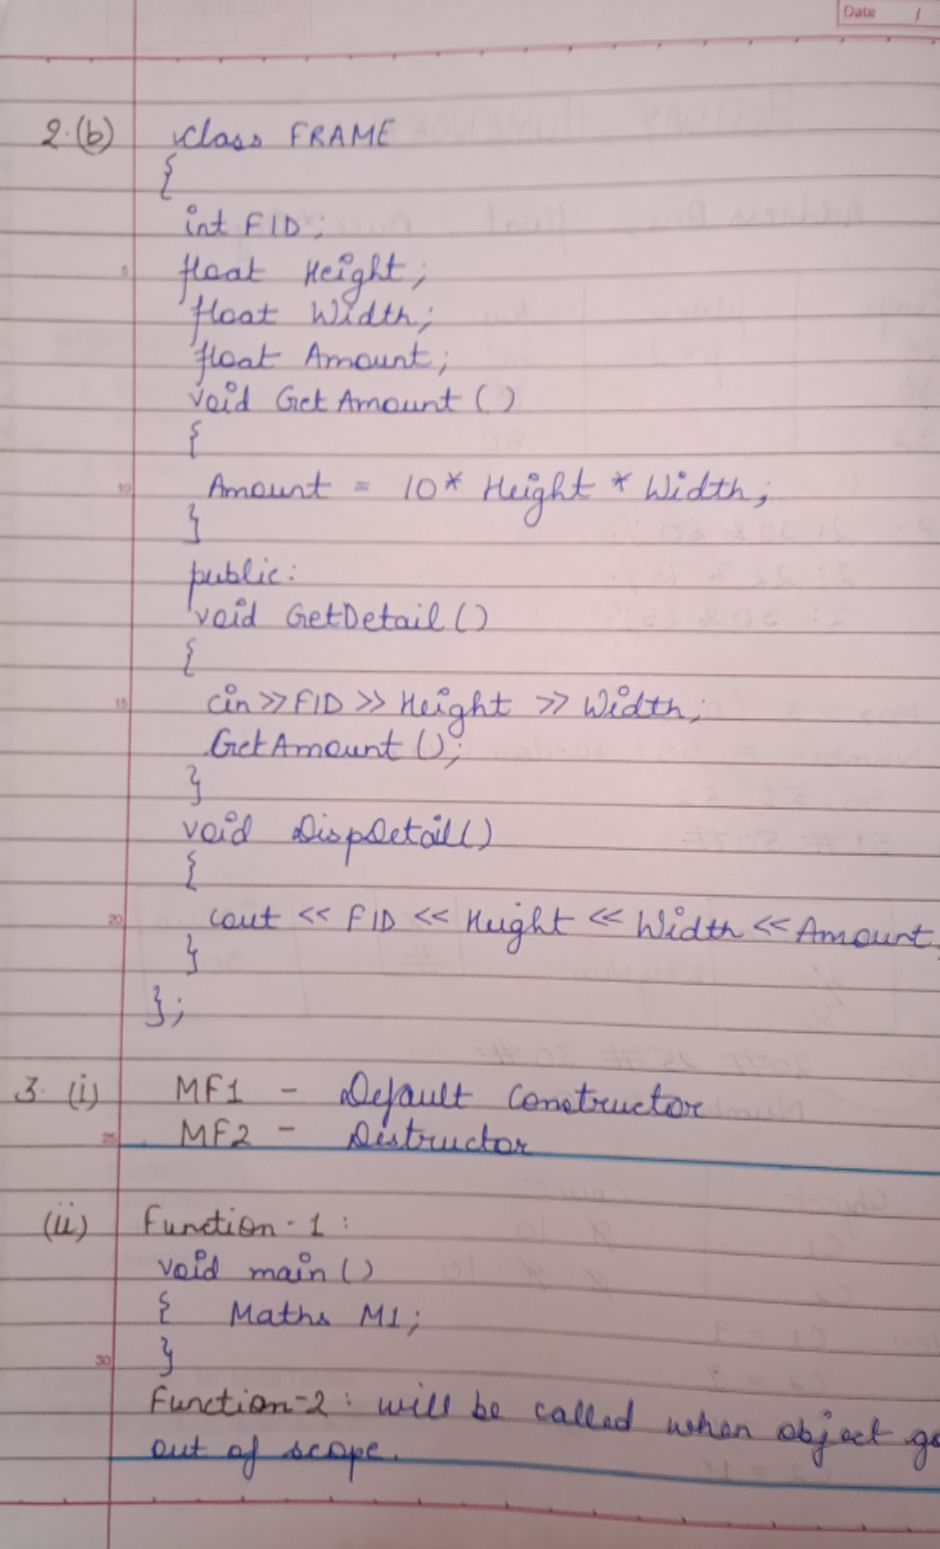 Date /
2.(b) class FRAME
{
int FID;
float Height;
5
float Width;
float Amount;
void GetAmount ()
{
10 Amount = 10* Height * Width;
}
public:
void GetDetail ()
{
15 cin >> FID >> Height >> Width;
GetAmount ();
}
void DispDetail()
{
20 cout << FID << Height << Width << Amount
}
};
3. (i) MF1 - Default Constructor
25 MF2 - Destructor
(ii) Function-1 :
void main ()
{ Maths M1;
30 }
Function-2 : will be called when object go
out of scope.